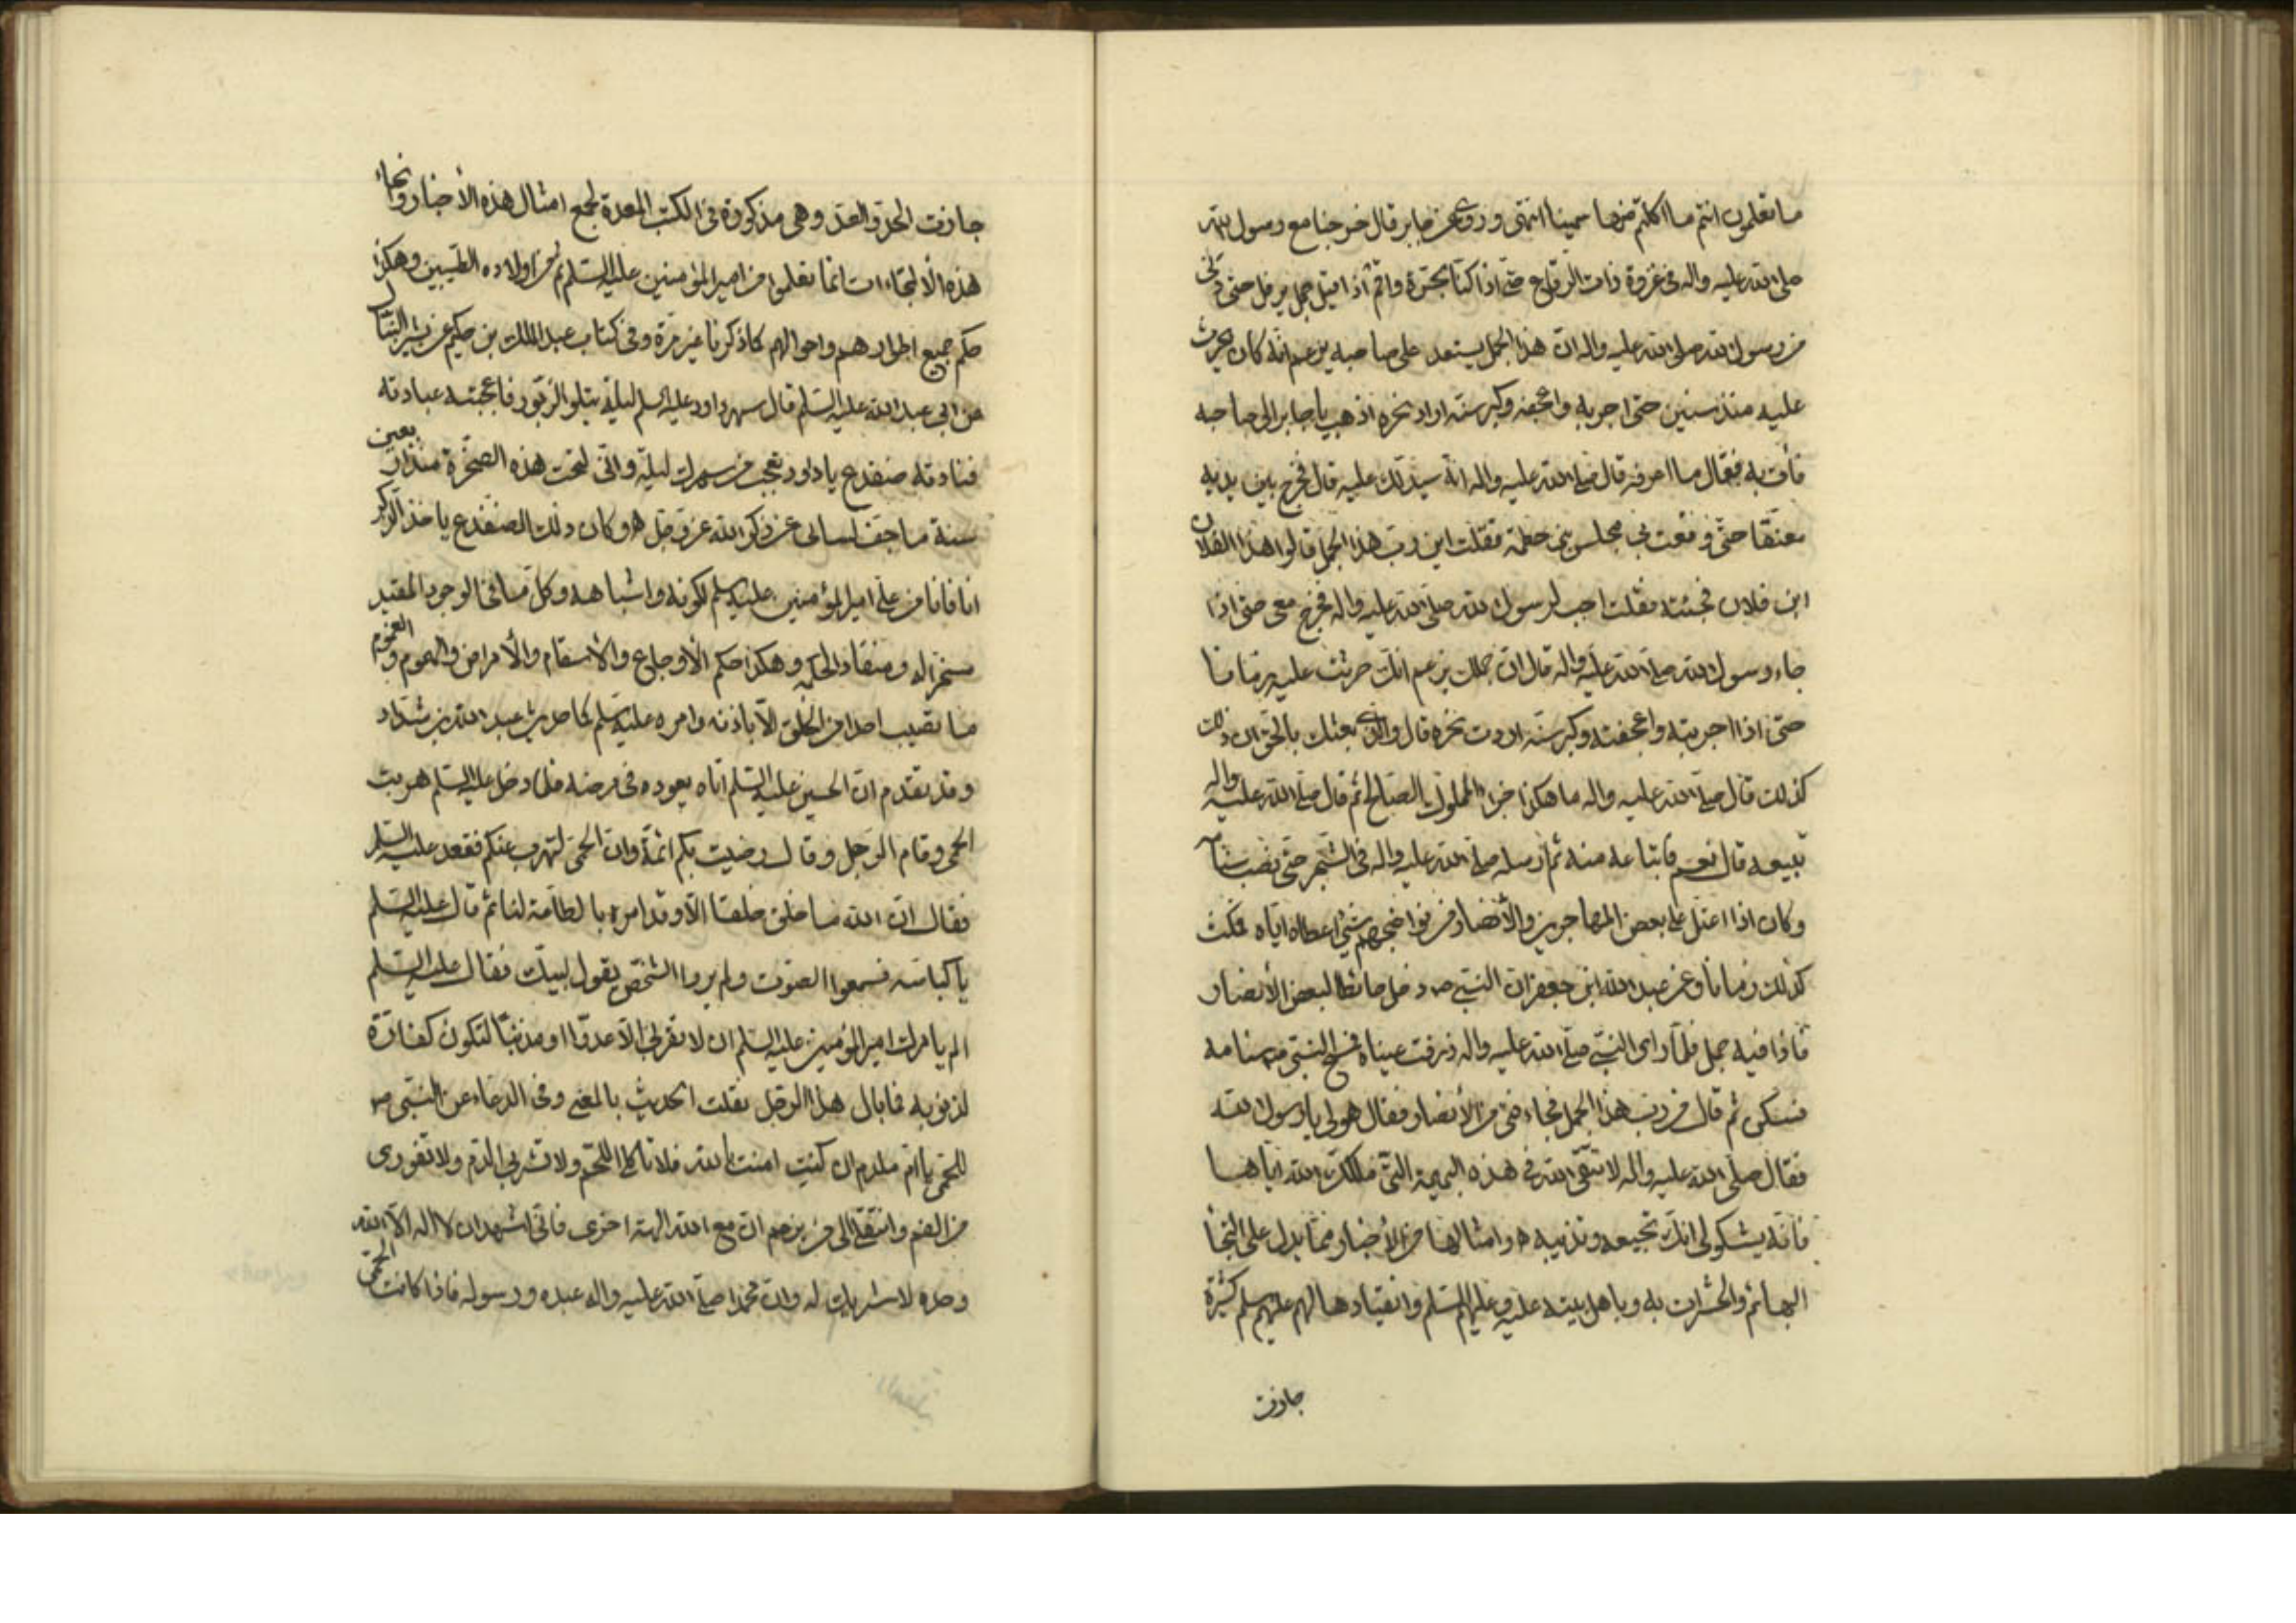 ما تعلمون انتم ما اكلتم منها سمينا انتهى وروى عن جابر قال خرجنا مع رسول الله
صلى الله عليه واله فى غزوة ذات الرقاع حتى اذا كنا بحرة واقم اذ اقبل جمل يرفل حتى دنى
من رسول الله صلى الله عليه واله ان هذا الجمل يستعد على صاحبه يزعم انه كان يحرث
عليه منذ سنين حتى اجربه واعجفه وكبر سنه اراد نحره اذهب يا جابر الى صاحبه
فأت به فقال ما اعرفه قال صلى الله عليه واله انه سيدلك عليه قال فخرج بين يديه
معنقا حتى وقعت فى مجلس بنى خطمة فقلت اين رب هذا الجمل قالوا هذا الفلان
ابن فلان فجئته فقلت اجب لرسول الله صلى الله عليه واله فخرج معى حتى اذا
جاء رسول الله صلى الله عليه واله قال ان جملك يزعم انك حرثت عليه زمانا
حتى اذا اجربته واعجفته وكبر سنه اردت نحره قال والذى بعثك بالحق ان ذلك
كذلك قال صلى الله عليه واله ما هكذا جزاء المملوك الصالح ثم قال صلى الله عليه واله
تبيعه قال نعم فابتاعه منه ثم ارسله صلى الله عليه واله فى الشجر حتى نصب سنامه
وكان اذا اعتل على بعض المهاجرين والأنصار من نواضحهم شئ اعطاه اياه فمكث
كذلك زمانا وعن عبد الله ابن جعفر ان النبى ص دخل حائطا لبعض الأنصار
فاذا فيه جمل فلما راى النبى صلى الله عليه واله ذرفت عيناه فمسح النبى ص سنامه
فسكن ثم قال من رب هذا الجمل فجاء فتى من الأنصار فقال هو لى يا رسول الله
فقال صلى الله عليه واله لا تتقى الله فى هذه البهيمة التى ملكك الله اياها
فانه يشكو لى انك تجيعه وتذيبه ه وامثالها من الأخبار مما يدل على التجاء
البهائم والحشرات به وباهل بيته عليه وعليهم السلم وانقيادها لهم عليهم سلم كثيرة
جاوزت
جاوزت الحد والعد وهى مذكورة فى الكتب المعدة لجمع امثال هذه الأخبار وانحاء
هذه الألتجاءات انما تعلموا من امير المؤمنين عليه السلم ثم من اولاده الطيبين وهكذا
حكم جميع اطوارهم واحوالهم كما ذكرنا غير مرة وفى كتاب عبد الملك بن حكيم عن بشير النبال
عن ابى عبد الله عليه السلم قال سهر داود عليه السلم ليلة يتلو الزبور فاعجبته عبادته
فنادته ضفدع يا داود تعجب من سهرك ليلة وانى لتحت هذه الصخرة منذ اربعين
سنة ما جف لسانى عن ذكر الله عز وجل ه وكان ذلك الضفدع يا خذ الذكر
انا فانا من على امير المؤمنين عليه سلم لكونه واشباهه وكل ما فى الوجود المقيد
مسخر له ومنقاد لحكمه وهكذا حكم الأوجاع والأسقام والأمراض والهموم والغموم
ما تصيب احدا من الخلق الا باذنه وامره عليه سلم كما حديث عبد الله بن شداد
وقد تقدم ان الحسين عليه السلم اتاه يعوده فى مرضه فلما دخل عليه السلم هربت
الحمى وقام الرجل وقال رضيت بكم ائمة وان الحمى لتهرب عنكم فقعد عليه السلم
فقال ان الله ما خلق خلقا الا وقد امره بالطاعة لنا ثم قال عليه السلم
يا كباسه فسمعوا الصوت ولم يروا الشخص يقول لبيك فقال عليه السلم
الم يامرك امير المؤمنين عليه السلم ان لا تقربى الا عدوا او مذنبا لتكون كفارة
لذنوبه فما بال هذا الرجل نقلت الحديث بالمعنى وفى الدعاء عن النبى ص
للحمى يا ام ملدم ان كنت امنت بالله فلا تاكلى اللحم ولا تشربى الدم ولا تفورى
من الفم وانتقلى الى من يزعم ان مع الله الهة اخرى فانى اشهد ان لا اله الا الله
وحده لا شريك له وان محمدا صلى الله عليه واله عبده ورسوله فاذا كانت الحمى